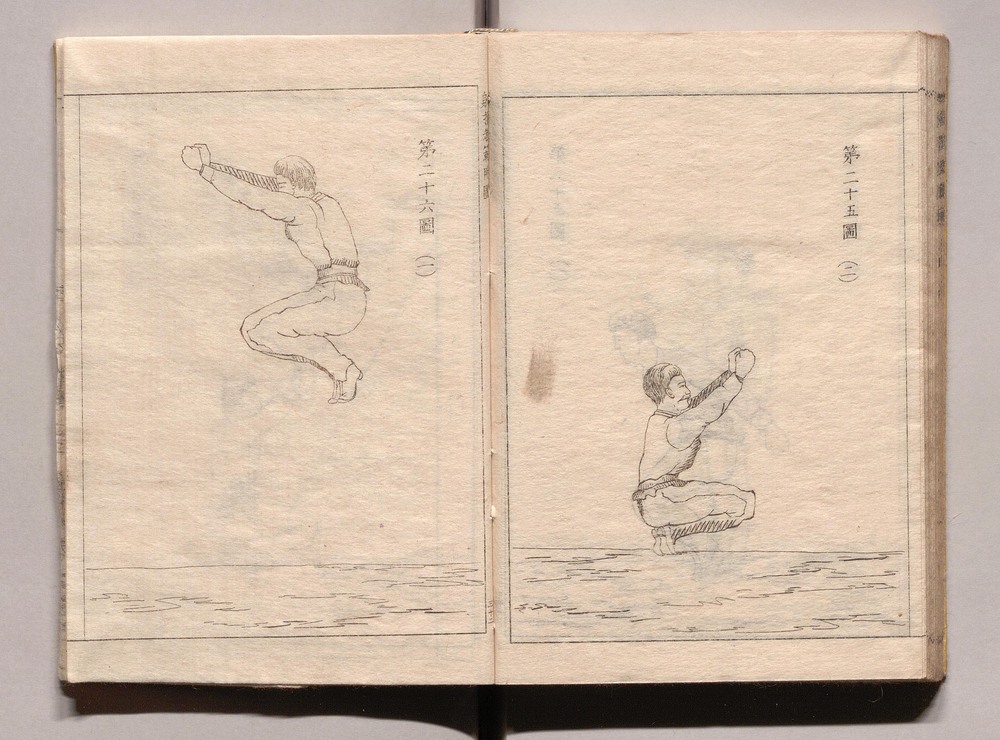 第二十五圖 (二)
第二十六圖 (一)